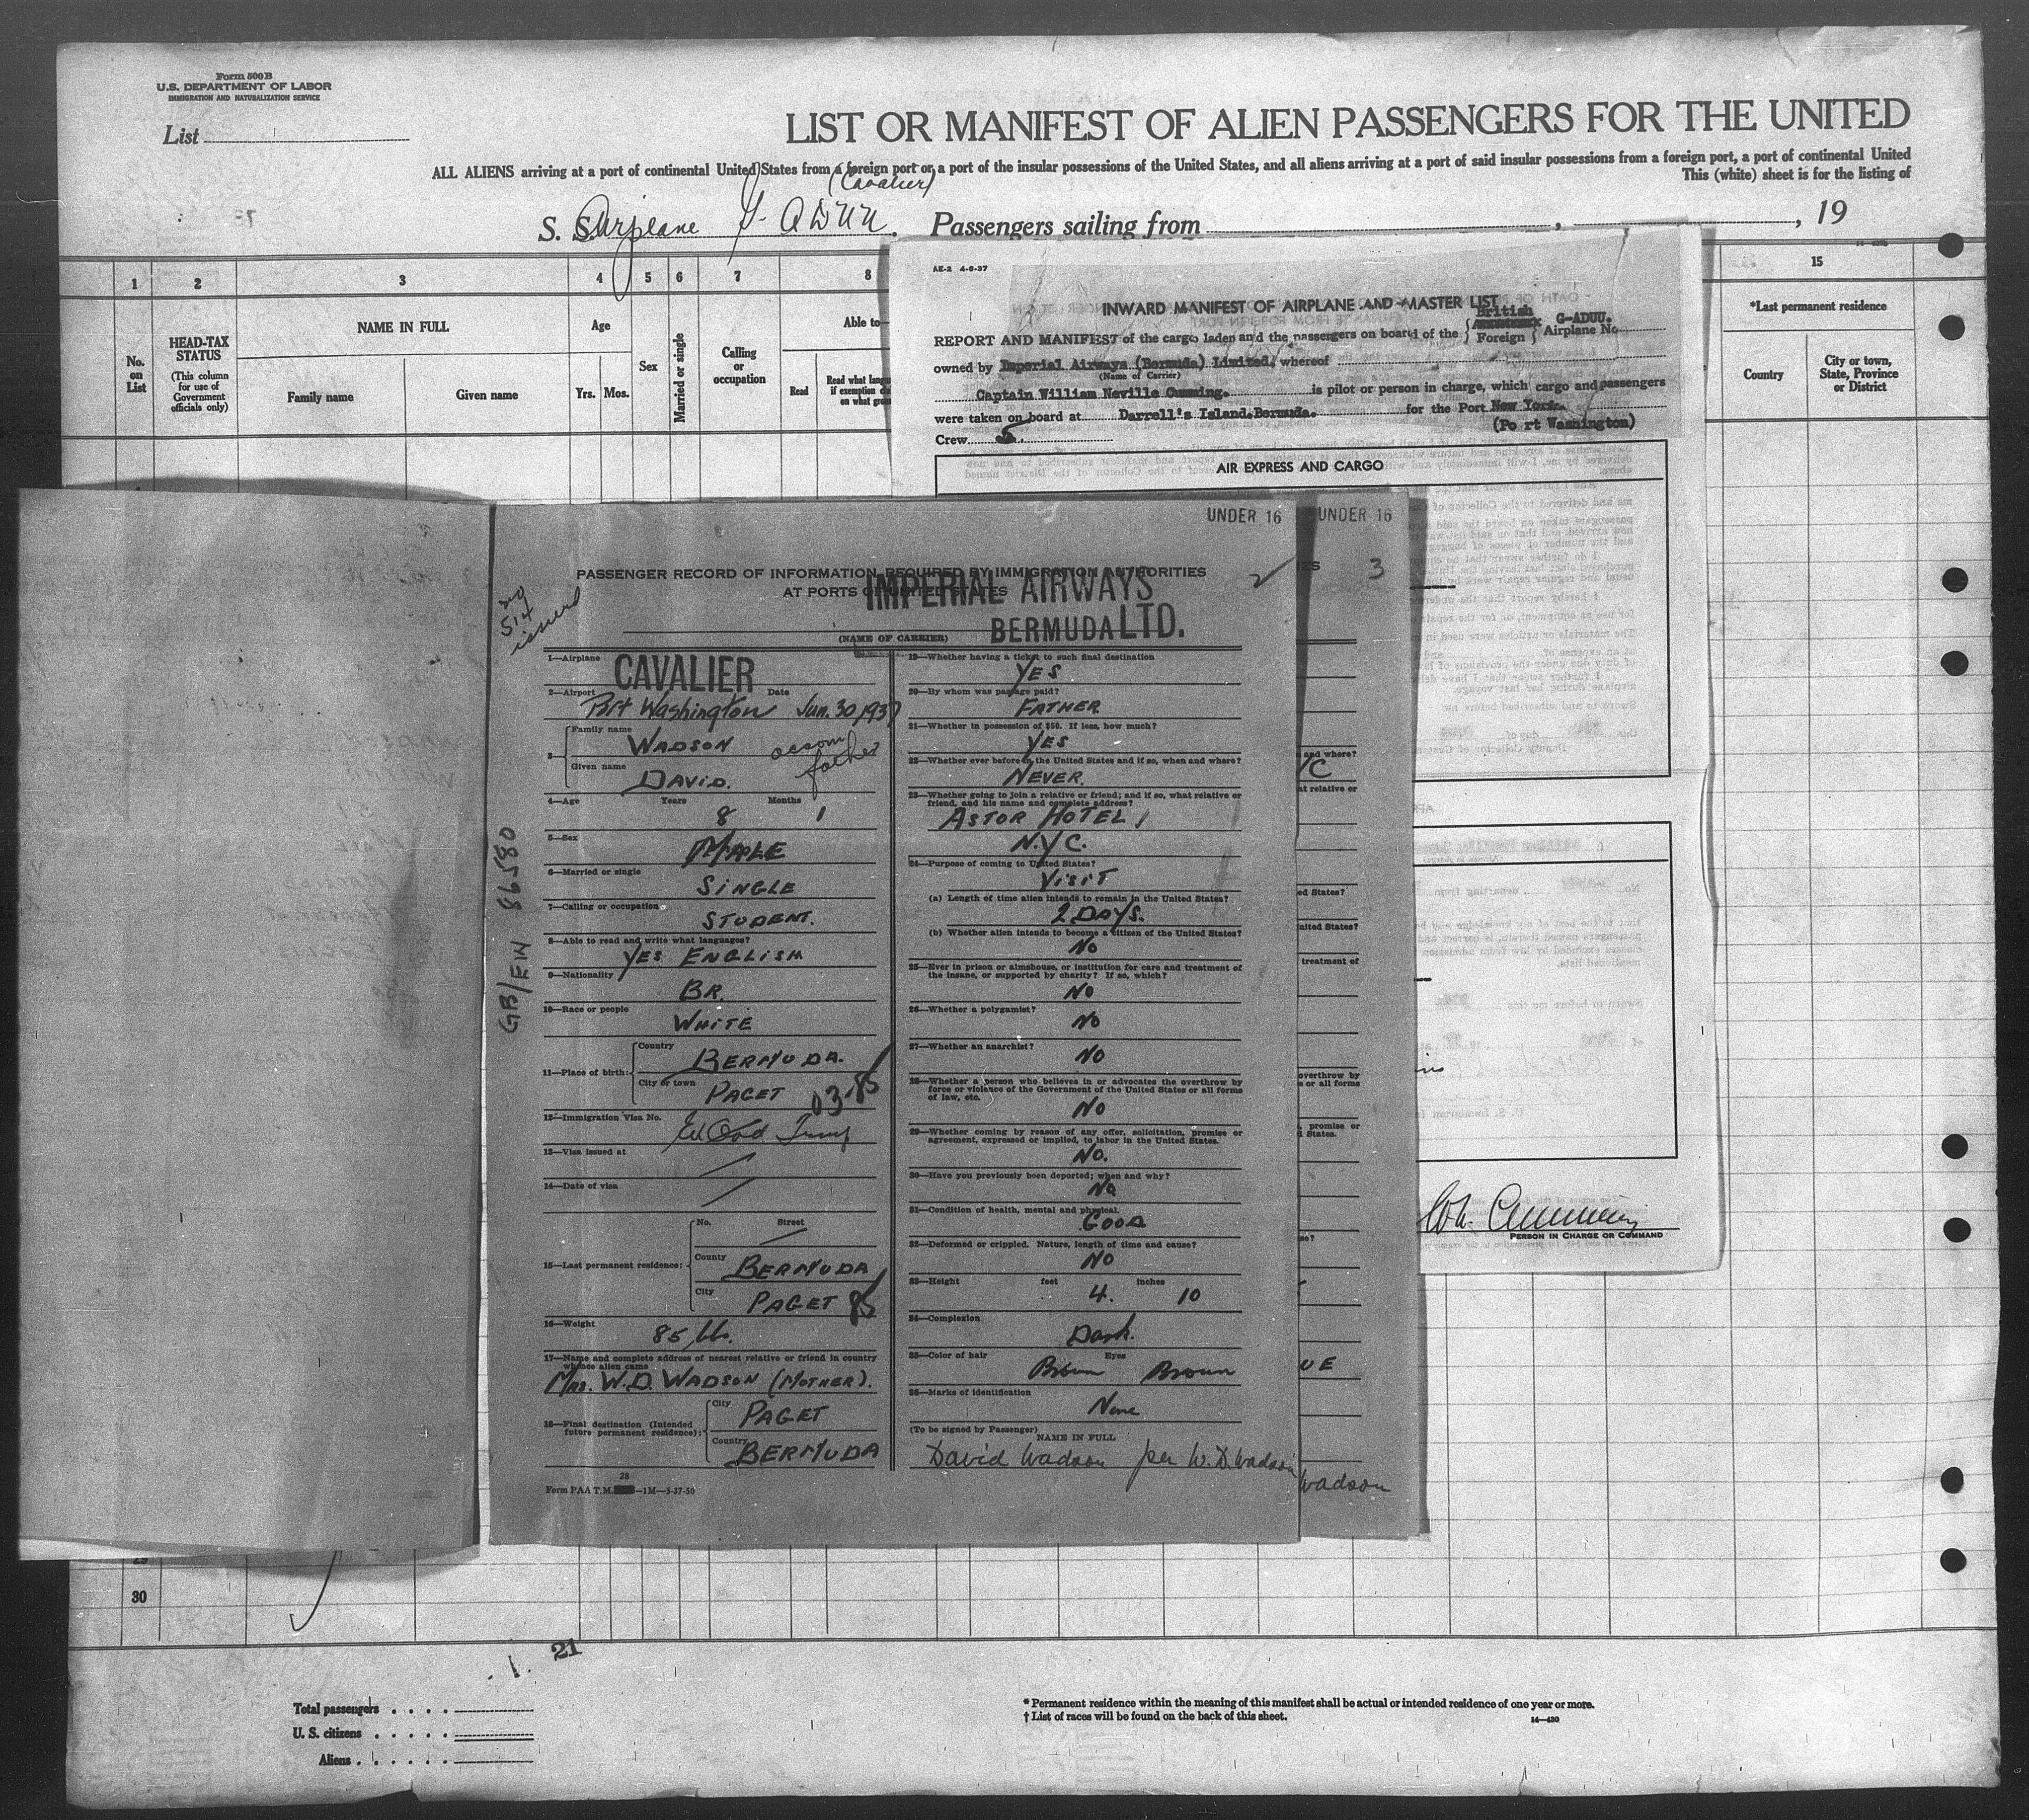 Form 500 B
U.S. DEPARTMENT OF LABOR
IMMIGRATION AND NATURALIZATION SERVICE
List
LIST OR MANIFEST OF ALIEN PASSENGERS FOR THE UNITED
ALL ALIENS arriving at a port of continental United States from a foreign port or a port of the insular possessions of the United States, and all aliens arriving at a port of said insular possessions from a foreign port, a port of continental United
This (white) sheet is for the listing of
(Cavalier)
S. S. Airplane G-ADUU. Passengers sailing from , , 19
1 2 3 4 5 6 7 8 15
No. on List
HEAD-TAX STATUS
(This column for use of Government officials only)
NAME IN FULL
Family name
Given name
Age
Yrs. Mos.
Sex
Married or single
Calling or occupation
Able to
Read
Read what
if exemption
on what
*Last permanent residence
Country
City or town, State, Province or District
AE-2 4-6-37
INWARD MANIFEST OF AIRPLANE AND MASTER LIST
REPORT AND MANIFEST of the cargo laden and the passengers on board of the { British Foreign } Airplane No. G-ADUU.
owned by Imperial Airways (Bermuda) Limited, whereof
(Name of Carrier)
Captain William Neville Cumming. is pilot or person in charge, which cargo and passengers
were taken on board at Darrell's Island. Bermuda. for the Port New York.
Crew 5. (Po rt Washington)
AIR EXPRESS AND CARGO
UNDER 16
UNDER 16
PASSENGER RECORD OF INFORMATION REQUIRED BY IMMIGRATION AUTHORITIES
AT PORTS OF UNITED STATES
2
3
IMPERIAL AIRWAYS
BERMUDA LTD.
(NAME OF CARRIER)
no
514
issued
GB/EIN 86580
1—Airplane CAVALIER
2—Airport Date
Port Washington Jun. 30, 1937
3— Family name WADSON
accom father
Given name DAVID.
4—Age Years 8 Months 1
5—Sex MALE
6—Married or single SINGLE
7—Calling or occupation STUDENT.
8—Able to read and write what languages?
YES ENGLISH
9—Nationality BR.
10—Race or people WHITE
11—Place of birth: Country BERMUDA.
City or town PAGET 03-85
12—Immigration Visa No.
13—Visa issued at
14—Date of visa
15—Last permanent residence: No. Street
County BERMUDA
City PAGET 85
16—Weight 85 lbs.
17—Name and complete address of nearest relative or friend in country whence alien came
MRS. W.D. WADSON (MOTHER).
18—Final destination (Intended future permanent residence): City PAGET
Country BERMUDA
28
Form PAA T.M. —1M—5-37-50
19—Whether having a ticket to such final destination
YES
20—By whom was passage paid?
FATHER
21—Whether in possession of $50. If less, how much?
YES
22—Whether ever before in the United States and if so, when and where?
NEVER.
23—Whether going to join a relative or friend; and if so, what relative or
friend, and his name and complete address?
ASTOR HOTEL,
N.Y.C.
24—Purpose of coming to United States?
VISIT
(a) Length of time alien intends to remain in the United States?
2 DAYS.
(b) Whether alien intends to become a citizen of the United States?
NO
25—Ever in prison or almshouse, or institution for care and treatment of
the insane, or supported by charity? If so, which?
NO
26—Whether a polygamist?
NO
27—Whether an anarchist?
NO
28—Whether a person who believes in or advocates the overthrow by
force or violence of the Government of the United States or all forms
of law, etc.
NO
29—Whether coming by reason of any offer, solicitation, promise or
agreement, expressed or implied, to labor in the United States.
NO.
30—Have you previously been deported; when and why?
NO
31—Condition of health, mental and physical.
GOOD
32—Deformed or crippled. Nature, length of time and cause?
NO
33—Height feet 4. inches 10
34—Complexion
Dark.
35—Color of hair Brown Eyes Brown
36—Marks of identification
None
(To be signed by Passenger)
NAME IN FULL
David Wadson per W. D. Wadson
Wadson
and where?
YC
at relative or
ed States?
nited States?
treatment of
overthrow by
s or all forms
promise or
d States.
se?
UE
W. N. Cumming
PERSON IN CHARGE OR COMMAND
29
30
- 1. 21
Total passengers
U. S. citizens
Aliens
* Permanent residence within the meaning of this manifest shall be actual or intended residence of one year or more.
† List of races will be found on the back of this sheet.
14—430